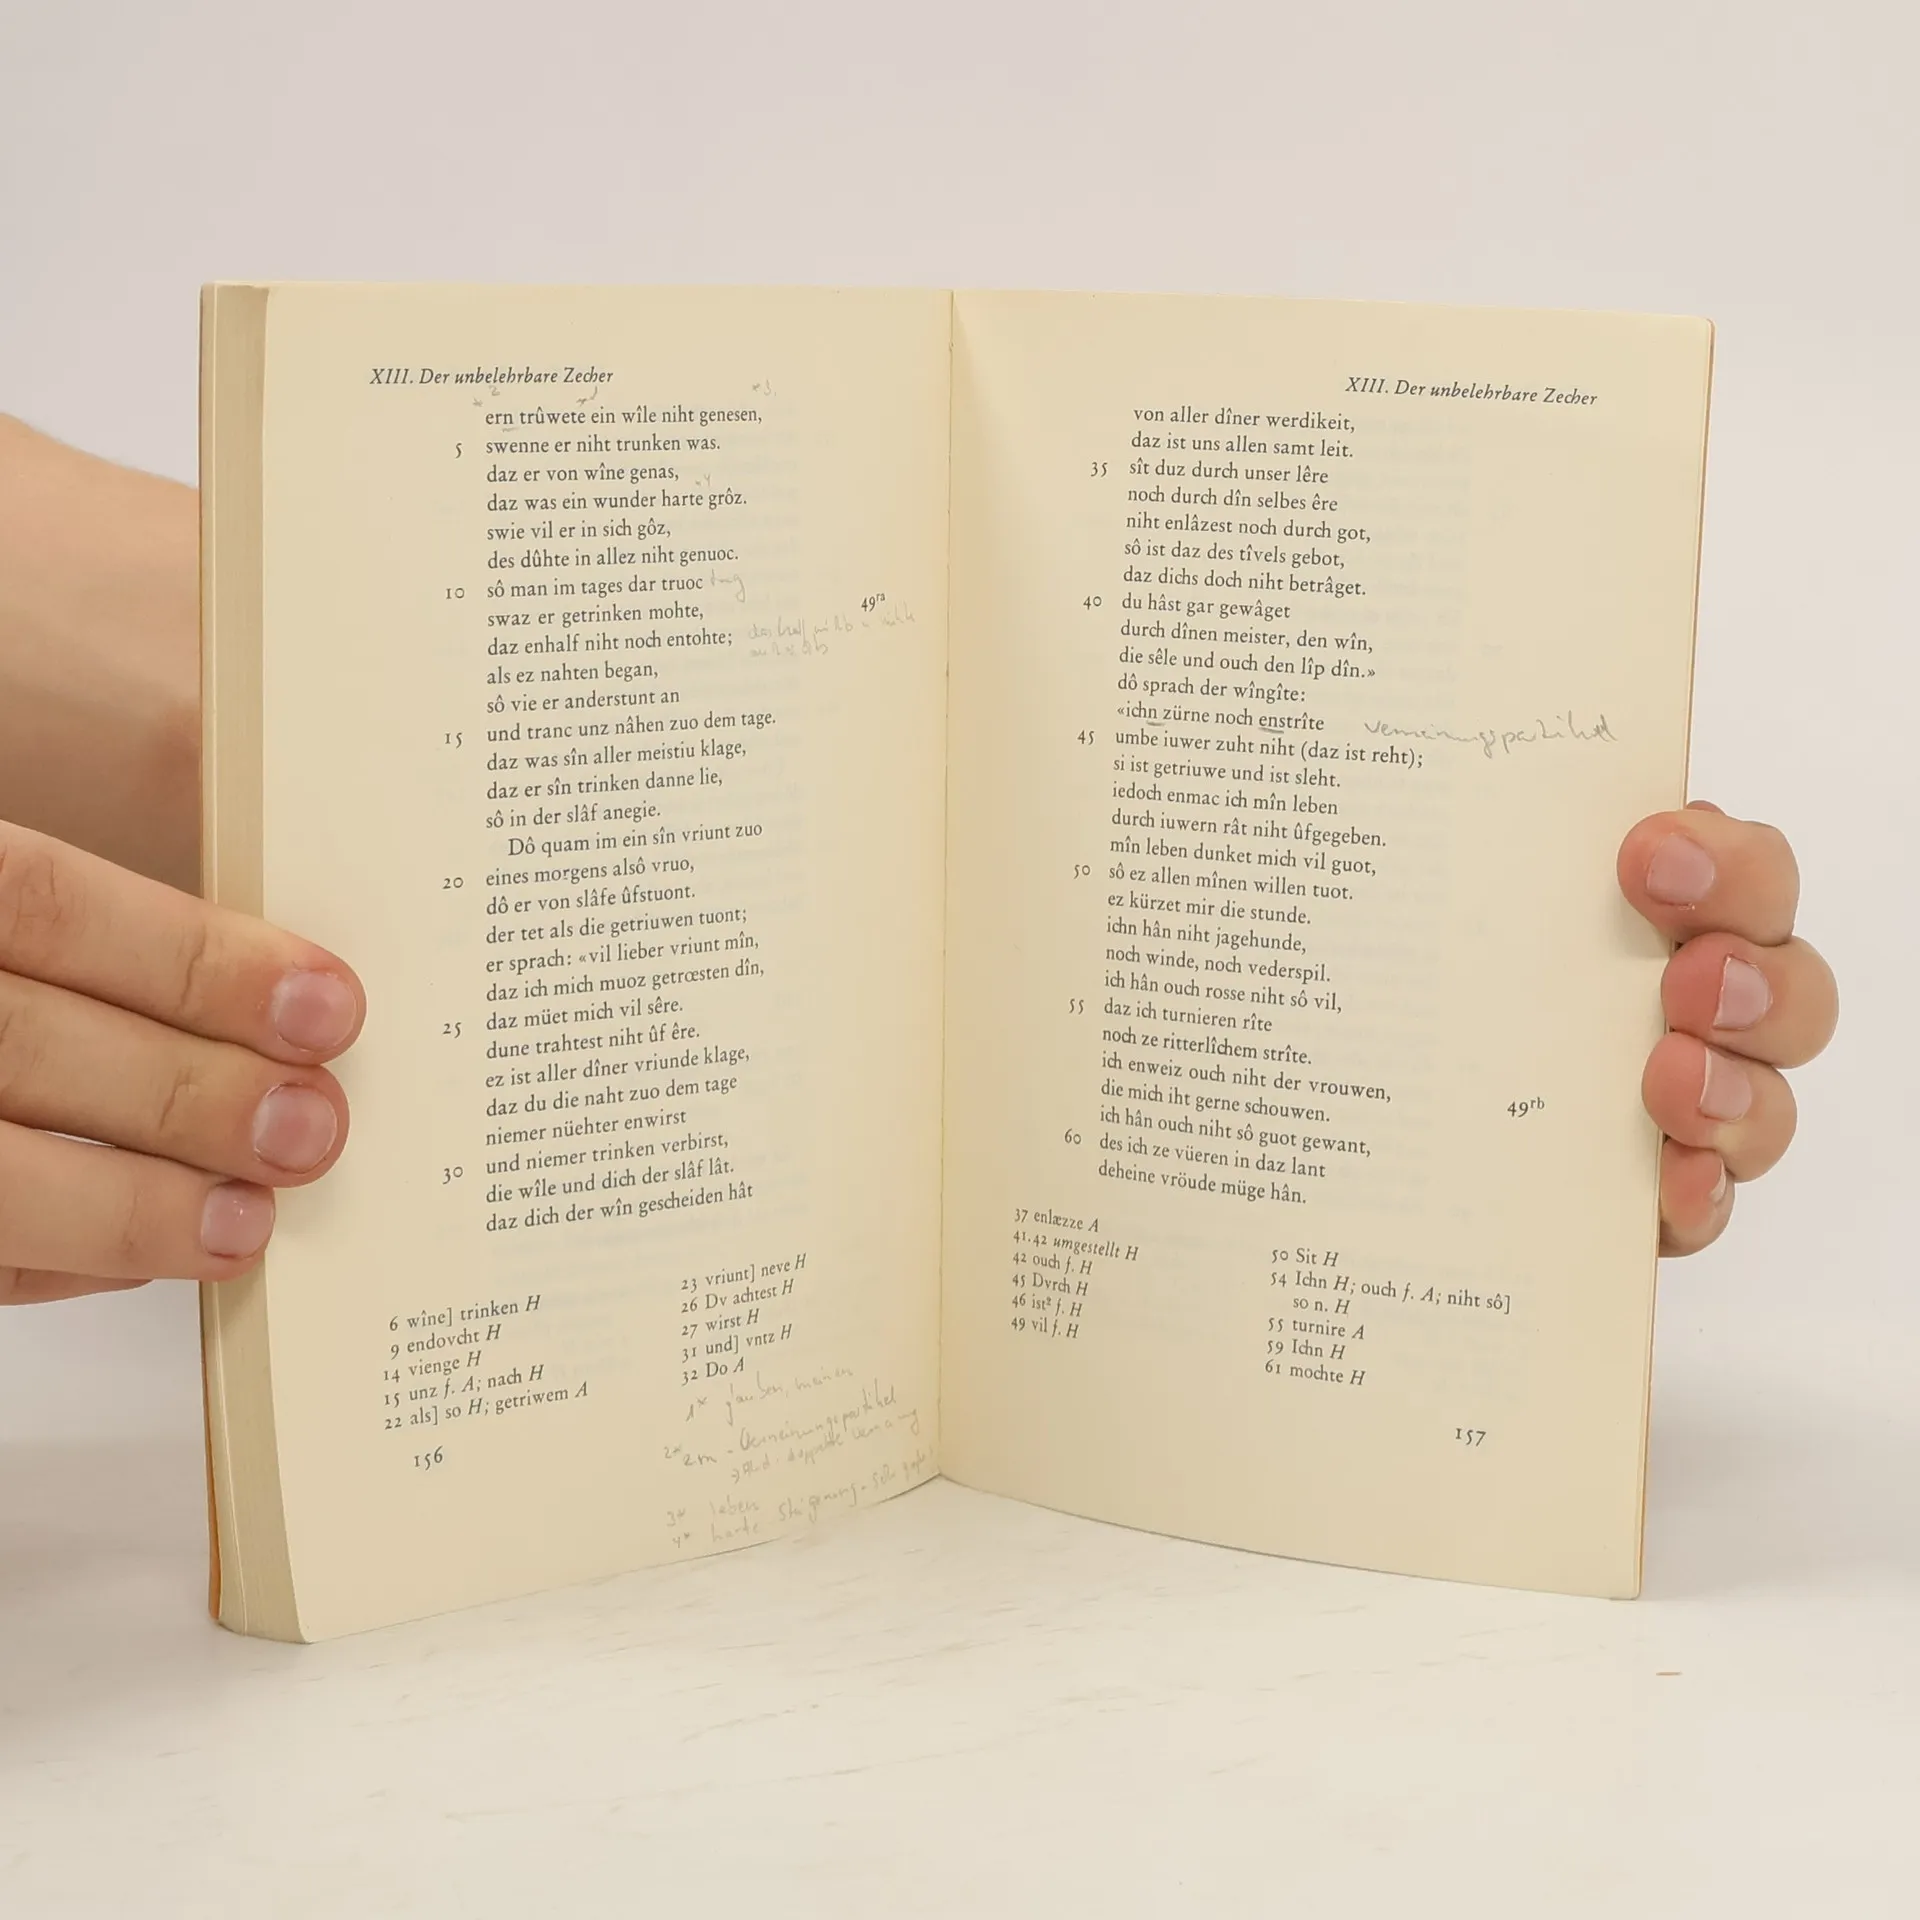 XIII. Der unbelehrbare Zecher
*2 *1 *3
ern trûwete ein wîle niht genesen,
5 swenne er niht trunken was.
daz er von wîne genas,
*4
daz was ein wunder harte grôz.
swie vil er in sich gôz,
des dûhte in allez niht genuoc.
10 sô man im tages dar truoc trug
swaz er getrinken mohte, 49ra
daz enhalf niht noch entohte; das half nicht
als ez nahten began,
sô vie er anderstunt an
15 und tranc unz nâhen zuo dem tage.
daz was sîn aller meistiu klage,
daz er sîn trinken danne lie,
sô in der slâf anegie.
Dô quam im ein sîn vriunt zuo
20 eines morgens alsô vruo,
dô er von slâfe ûfstuont.
der tet als die getriuwen tuont;
er sprach: «vil lieber vriunt mîn,
daz ich mich muoz getrœsten dîn,
25 daz müet mich vil sêre.
dune trahtest niht ûf êre.
ez ist aller dîner vriunde klage,
daz du die naht zuo dem tage
niemer nüehter enwirst
30 und niemer trinken verbirst,
die wîle und dich der slâf lât.
daz dich der wîn gescheiden hât
6 wîne] trinken H
9 endovcht H
14 vienge H
15 unz f. A; nach H
22 als] so H; getriwem A
23 vriunt] neve H
26 Dv achtest H
27 wirst H
31 und] vntz H
32 Do A
1* glauben, meinen
2* Verneinungspartikel
doppelte
3* leben
4* harte Steigerung - sehr
156
XIII. Der unbelehrbare Zecher
von aller dîner werdikeit,
daz ist uns allen samt leit.
35 sît duz durch unser lêre
noch durch dîn selbes êre
niht enlâzest noch durch got,
sô ist daz des tîvels gebot,
daz dichs doch niht betrâget.
40 du hâst gar gewâget
durch dînen meister, den wîn,
die sêle und ouch den lîp dîn.»
dô sprach der wîngîte:
«ichn zürne noch enstrîte Verneinungspartikel
45 umbe iuwer zuht niht (daz ist reht);
si ist getriuwe und ist sleht.
iedoch enmac ich mîn leben
durch iuwern rât niht ûfgegeben.
mîn leben dunket mich vil guot,
50 sô ez allen mînen willen tuot.
ez kürzet mir die stunde.
ichn hân niht jagehunde,
noch winde, noch vederspil.
ich hân ouch rosse niht sô vil,
55 daz ich turnieren rîte
noch ze ritterlîchem strîte.
ich enweiz ouch niht der vrouwen,
die mich iht gerne schouwen. 49rb
ich hân ouch niht sô guot gewant,
60 des ich ze vüeren in daz lant
deheine vröude müge hân.
37 enlæzze A
41.42 umgestellt H
42 ouch f. H
45 Dvrch H
46 ist² f. H
49 vil f. H
50 Sit H
54 Ichn H; ouch f. A; niht sô]
so n. H
55 turnire A
59 Ichn H
61 mochte H
157